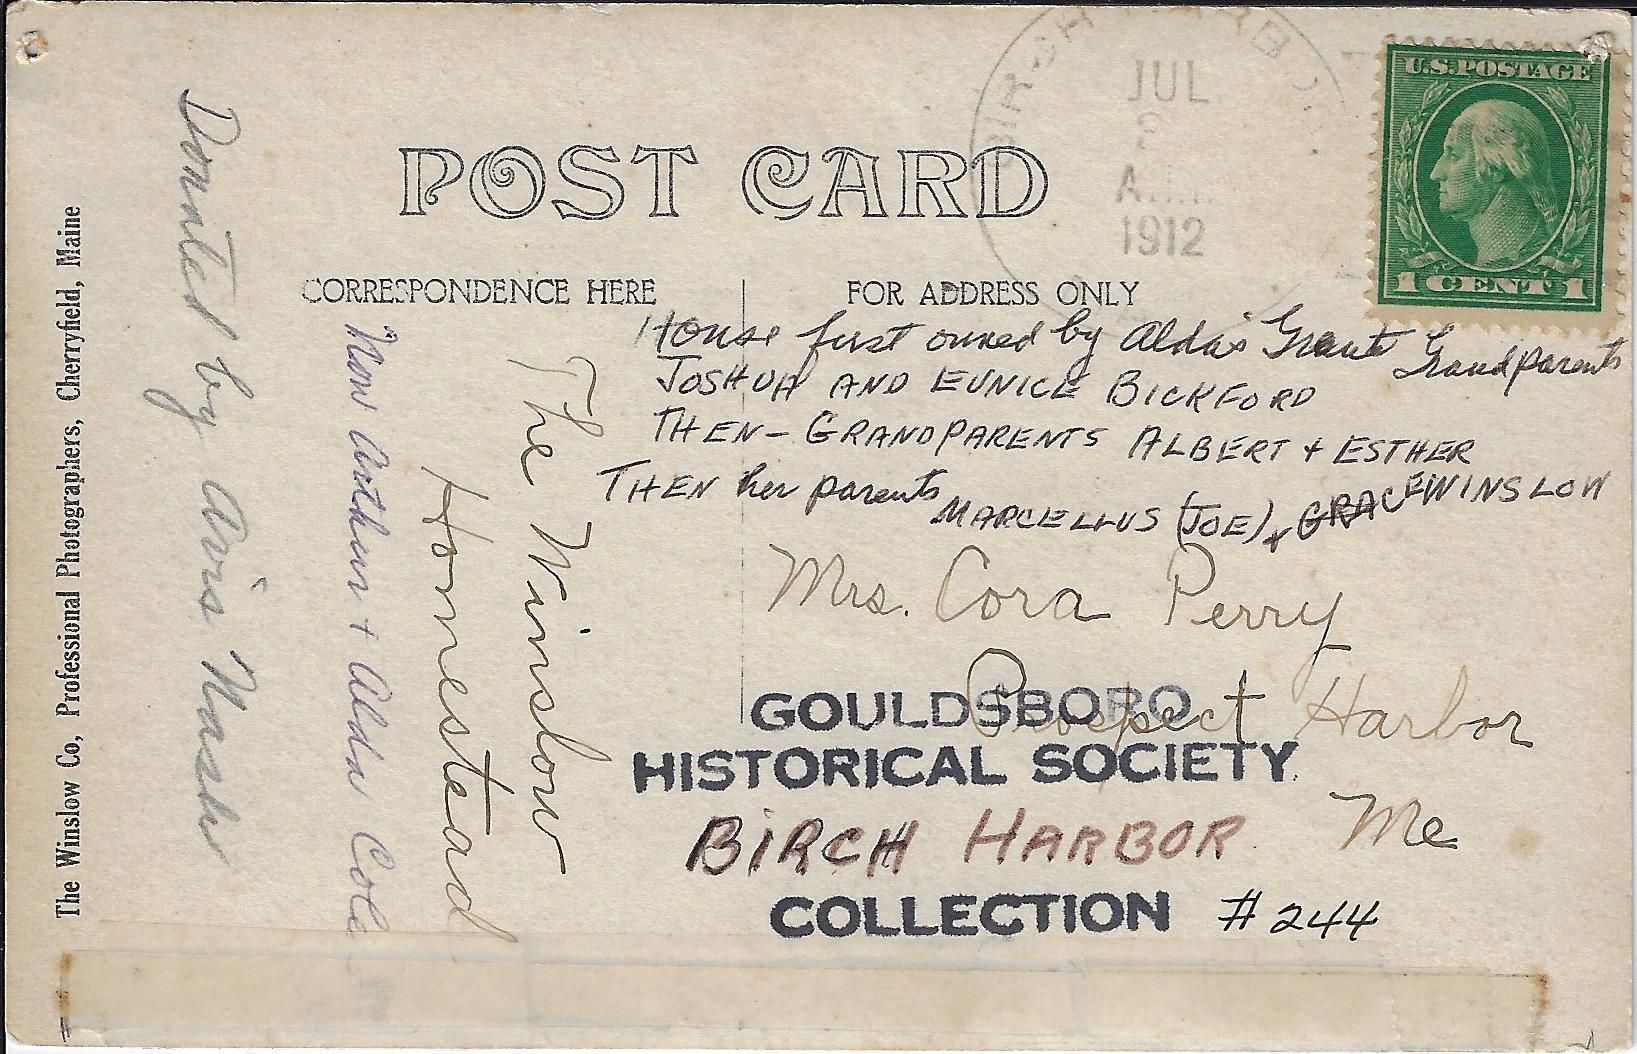 POST CARD
CORRESPONDENCE HERE
FOR ADDRESS ONLY
BIRCH HARBOR
JUL
2
A.
1912
U.S. POSTAGE
1 CENT 1
House first owned by Alda's Great Grandparents
JOSHUA AND EUNICE BICKFORD
THEN - GRANDPARENTS ALBERT + ESTHER
THEN her parents MARCELLUS (JOE) + GRACE WINSLOW
Mrs. Cora Perry
Prospect Harbor
Me
GOULDSBORO
HISTORICAL SOCIETY
BIRCH HARBOR
COLLECTION # 244
The Winslow
Homestead
Now Arthur + Alda Cole
Donated by Avis Nash
The Winslow Co, Professional Photographers, Cherryfield, Maine